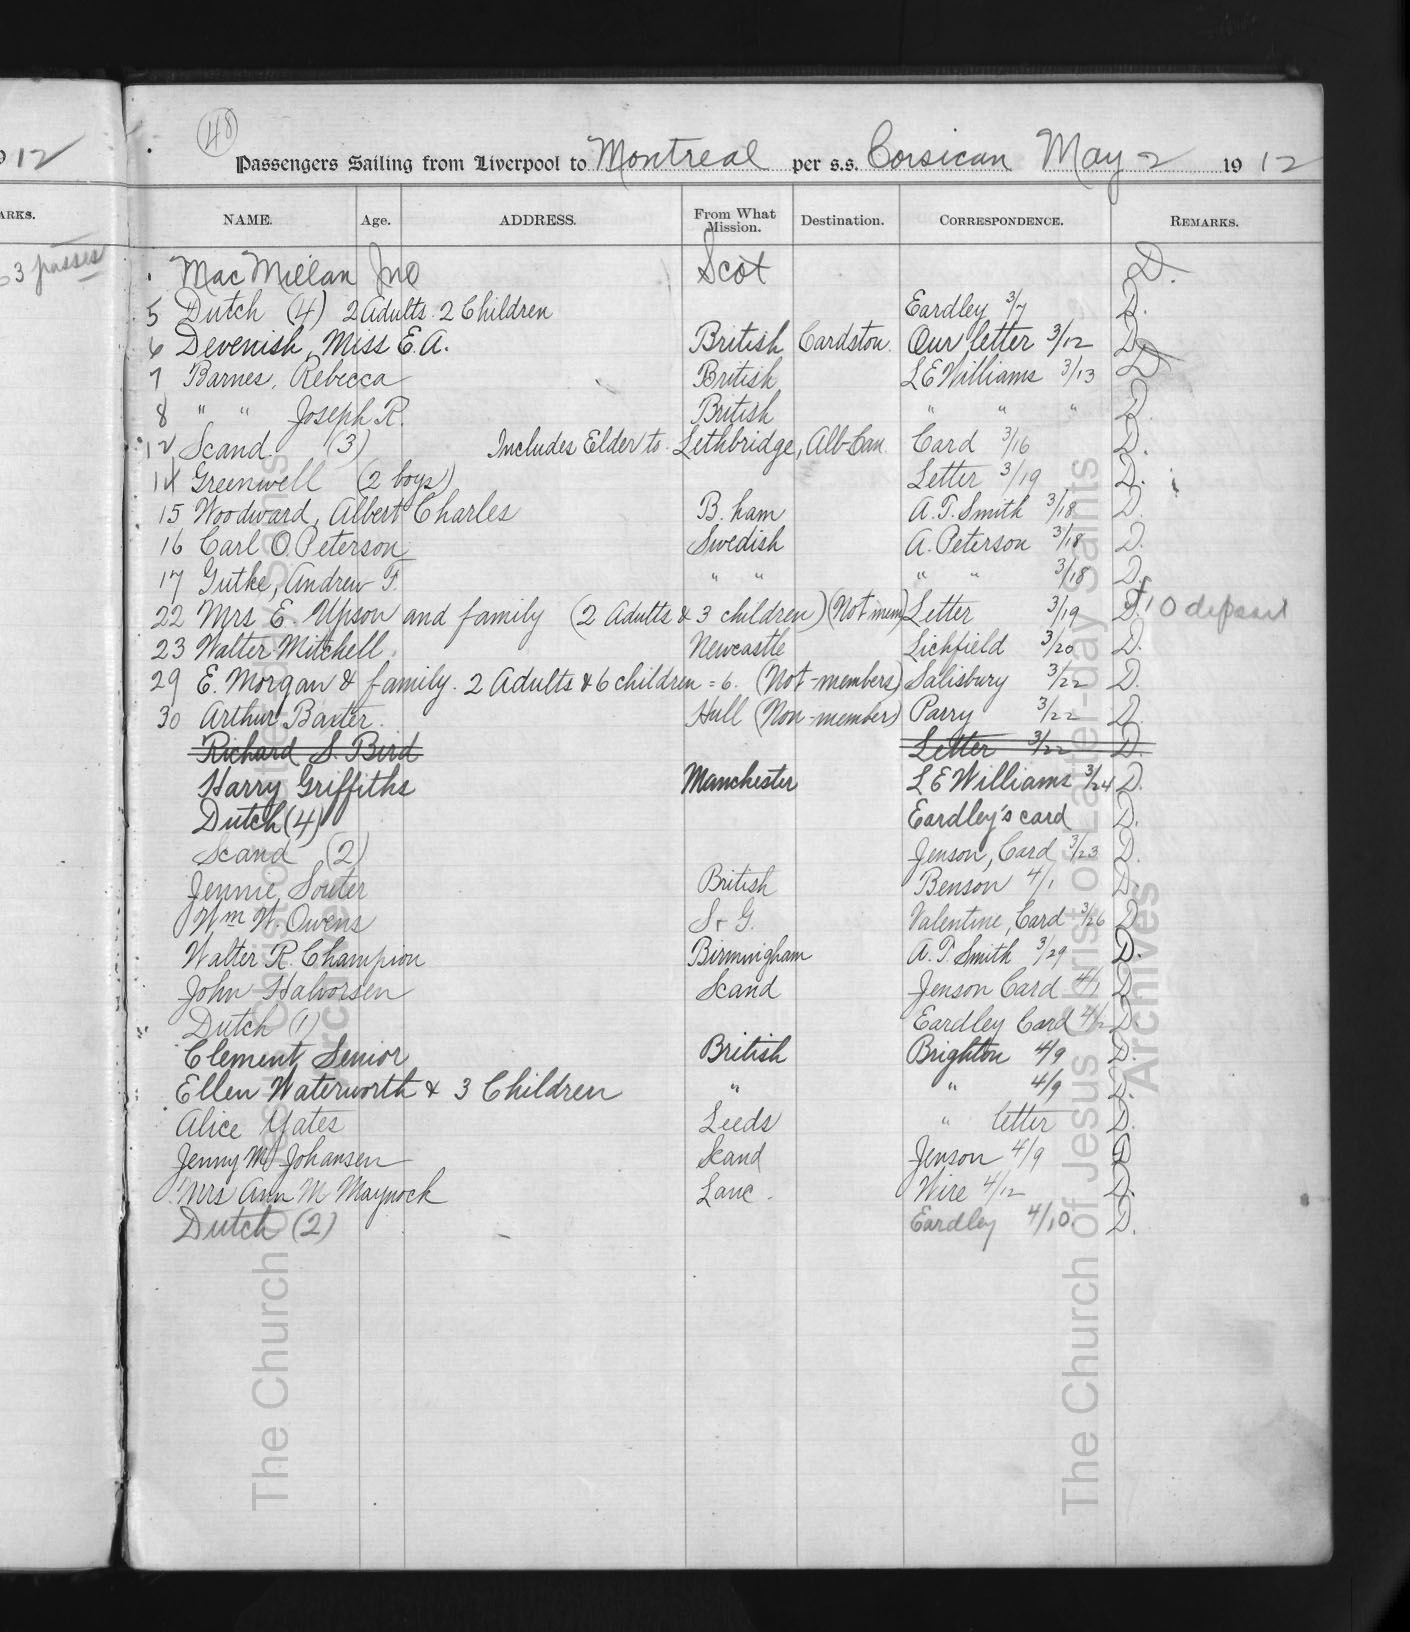 912
ARKS.
3 passes
48
Passengers Sailing from Liverpool to Montreal per s.s. Corsican May 2 1912
NAME. Age. ADDRESS. From What Mission. Destination. CORRESPONDENCE. REMARKS.
MacMillan Jno Scot D.
5 Dutch (4) 2 Adults 2 Children Eardley 3/7 D.
6 Devenish, Miss E.A. British Cardston. Our letter 3/12 D
7 Barnes, Rebecca British L E Williams 3/13 D
8 " " Joseph R. British " " " D.
12 Scand (3) Includes Elder to Lethbridge, Alb-Can. Card 3/16 D.
14 Greenwell (2 boys) Letter 3/19 D.
15 Woodward, Albert Charles B. ham A. T. Smith 3/18 D.
16 Carl O. Peterson Swedish A. Peterson 3/18 D.
17 Gutke, Andrew F. " " " " 3/18 D.
22 Mrs E. Upson and family (2 Adults & 3 children) (Not mem) Letter 3/19 D. 10 deposit
23 Walter Mitchell. Newcastle Lichfield 3/20 D.
29 E. Morgan & family. 2 Adults & 6 children = 6. (Not-members) Salisbury 3/22 D.
30 Arthur Baxter. Hull (Non-member) Parry 3/22 D.
Richard S. Bird Letter 3/22 D.
Harry Griffiths Manchester L E Williams 3/24 D.
Dutch (4) Eardley's card D.
Scand (2) Jenson, Card 3/23 D.
Jennie Souter British Benson 4/1 D.
Wm W. Owens S & G. Valentine, Card 3/26 D
Walter R. Champion Birmingham A. T. Smith 3/29 D.
John Halvorsen Scand Jenson Card 4/1 D
Dutch (1) Eardley Card 4/2 D
Clement Senior British Brighton 4/9 D.
Ellen Waterworth & 3 Children " " 4/9 D.
Alice Yates Leeds " letter D.
Jenny M Johansen Scand Jenson 4/9 D
Mrs Ann M Maynock Lanc. Wire 4/12 D.
Dutch (2) Eardley 4/10 D.
The Church of Jesus Christ of Latter-day Saints
Archives
The Church of Jesus Christ of Latter-day Saints
Archives